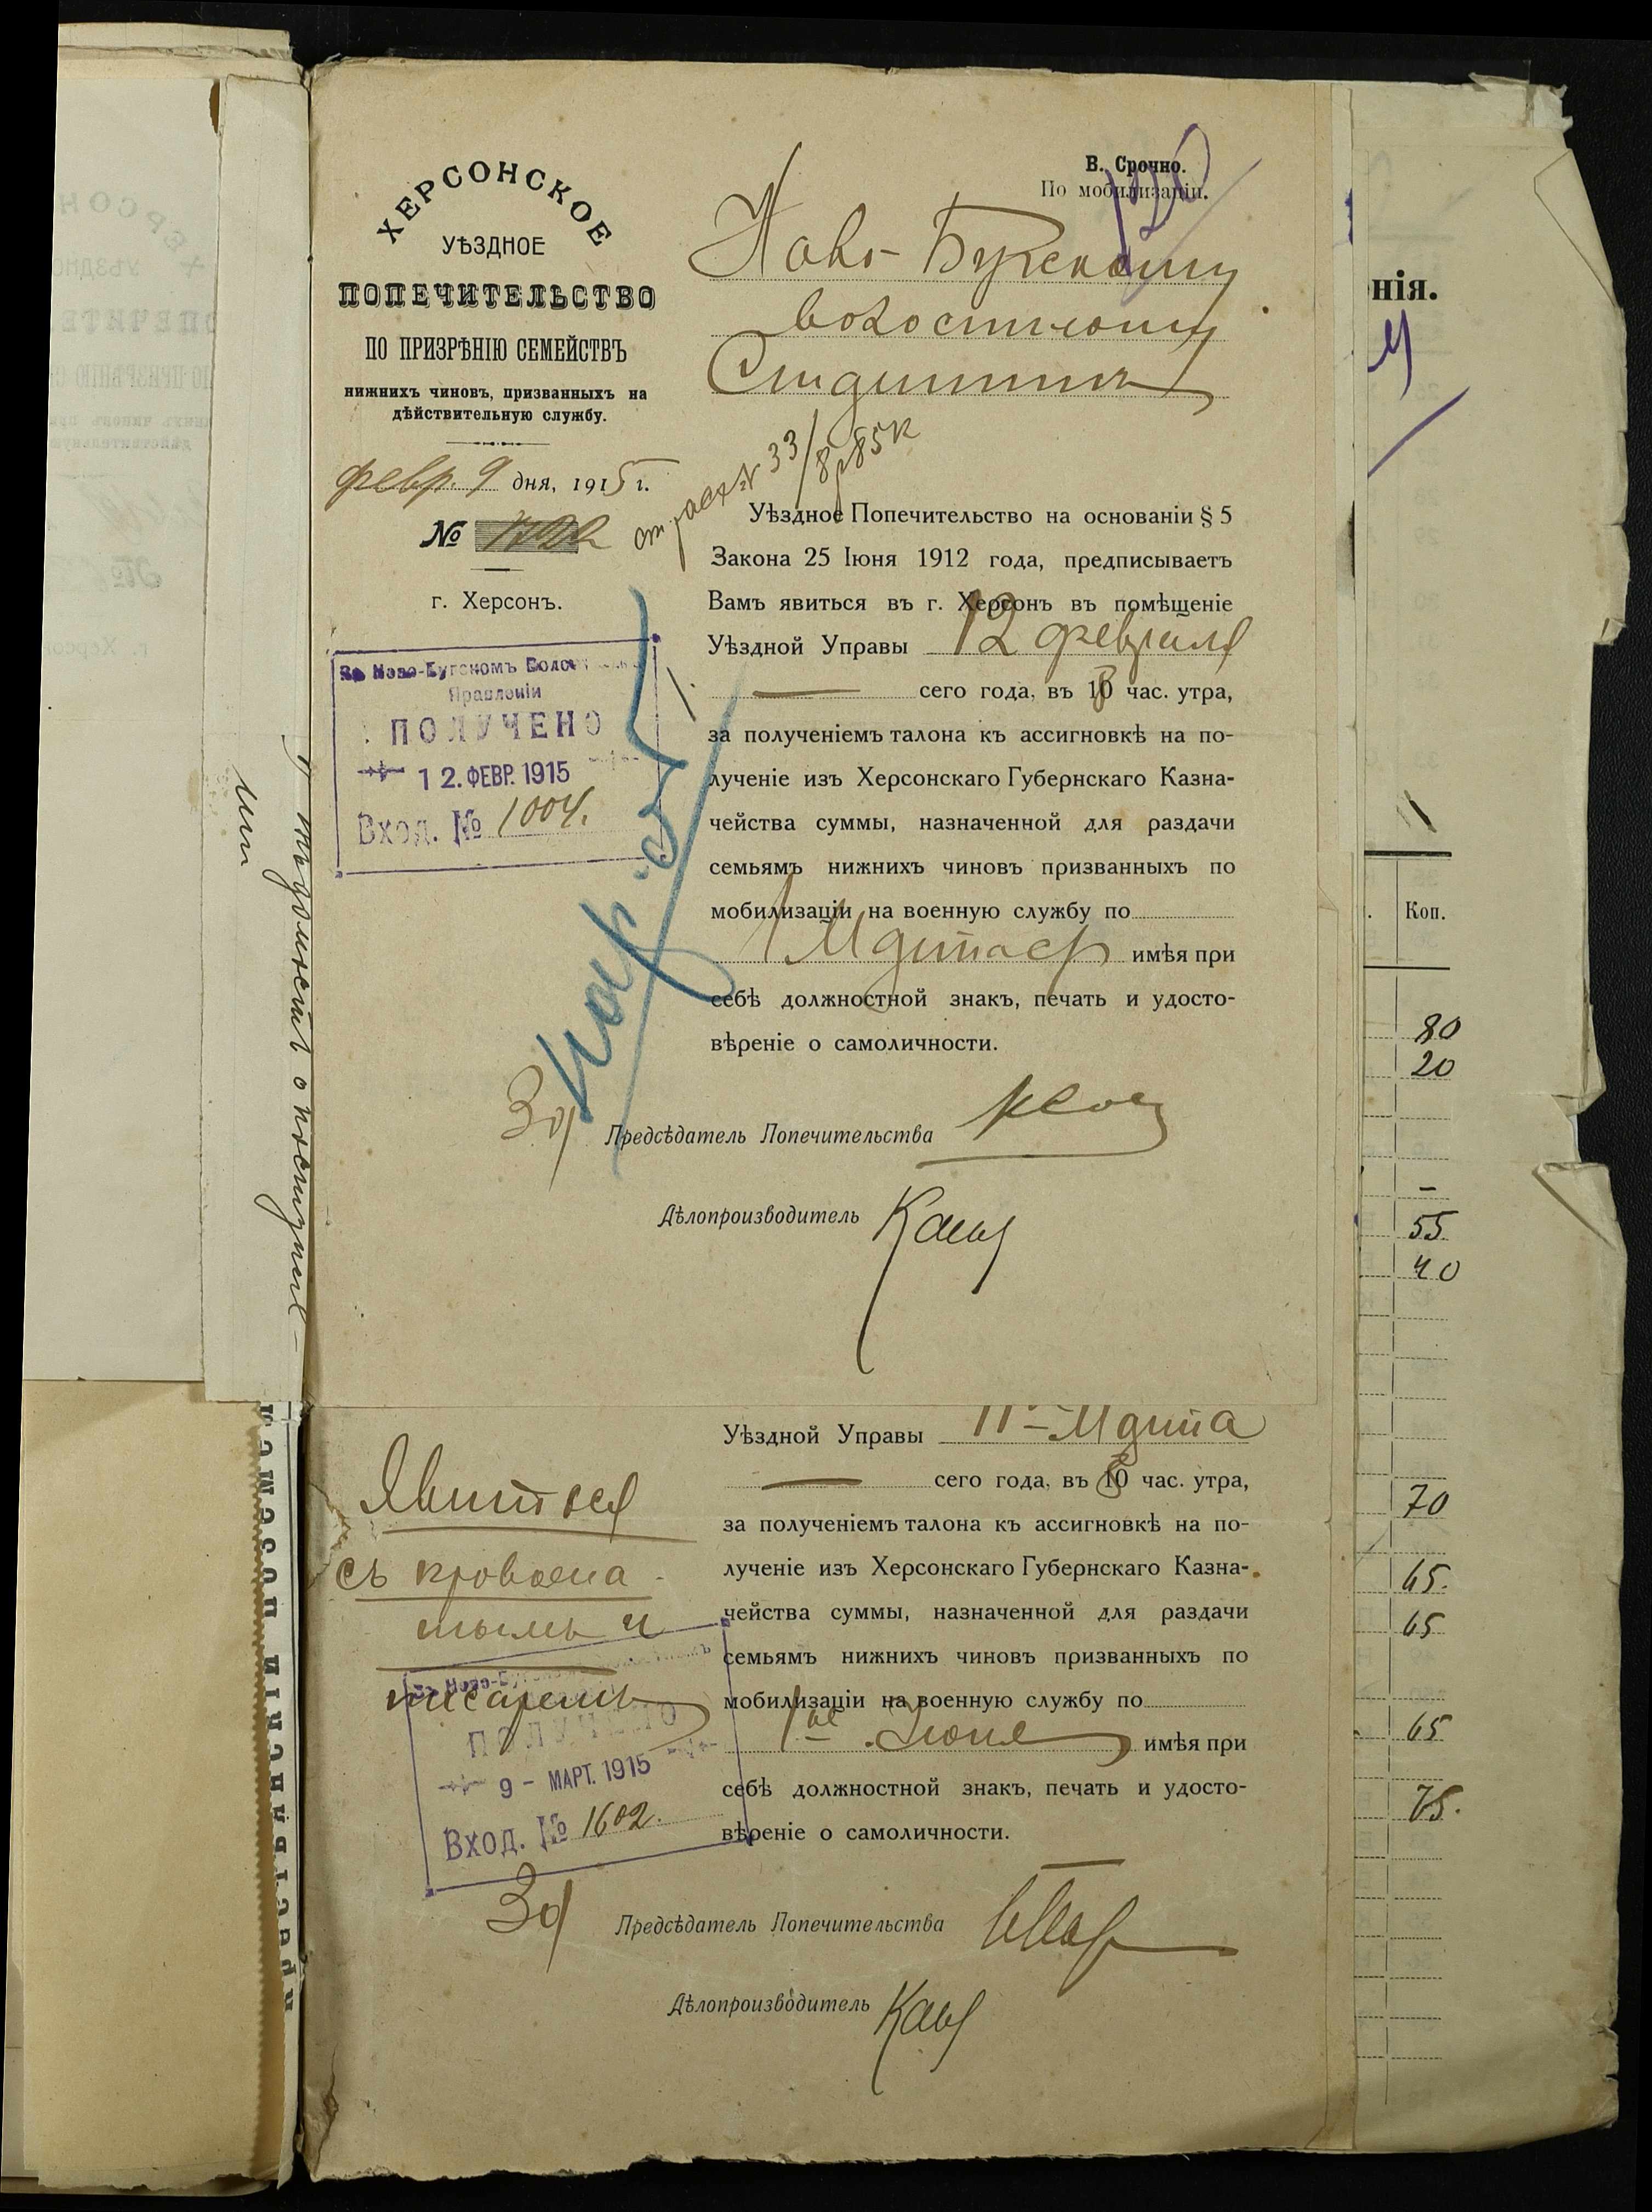 В. Срочно.
По мобилизаціи.
ХЕРСОНСКОЕ
УѢЗДНОЕ
ПОПЕЧИТЕЛЬСТВО
ПО ПРИЗРѢНІЮ СЕМЕЙСТВЪ
нижнихъ чиновъ, призванныхъ на
дѣйствительную службу.
февр. 9 дня, 1915 г.
№
г. Херсонъ.
Ново-Бугскому
волостному
Уѣздное Попечительство на основаніи § 5
Закона 25 Іюня 1912 года, предписываетъ
Вамъ явиться въ г. Херсонъ въ помѣщеніе
Уѣздной Управы 12 февраля
сего года, въ час. утра,
за полученіемъ талона къ ассигновкѣ на по-
лученіе изъ Херсонскаго Губернскаго Казна-
чейства суммы, назначенной для раздачи
семьямъ нижнихъ чиновъ призванныхъ по
мобилизаціи на военную службу по
1 Марта имѣя при
себѣ должностной знакъ, печать и удосто-
вѣреніе о самоличности.
Въ Ново-Бугскомъ Волост
Правленіи
ПОЛУЧЕНО
12. ФЕВР. 1915
Вход. № 1004.
За Предсѣдатель Попечительства
Дѣлопроизводитель
Уѣздной Управы 11 Марта
сего года, въ час. утра,
за полученіемъ талона къ ассигновкѣ на по-
лученіе изъ Херсонскаго Губернскаго Казна-
чейства суммы, назначенной для раздачи
семьямъ нижнихъ чиновъ призванныхъ по
мобилизаціи на военную службу по
1ое Іюня имѣя при
себѣ должностной знакъ, печать и удосто-
вѣреніе о самоличности.
Явиться
съ
и
писаремъ
ПОЛУЧЕНО
9 - МАРТ. 1915
Вход. № 1602.
За Предсѣдатель Попечительства
Дѣлопроизводитель
нія.
Коп.
80
20
-
55
40
70
65.
65
65
75.